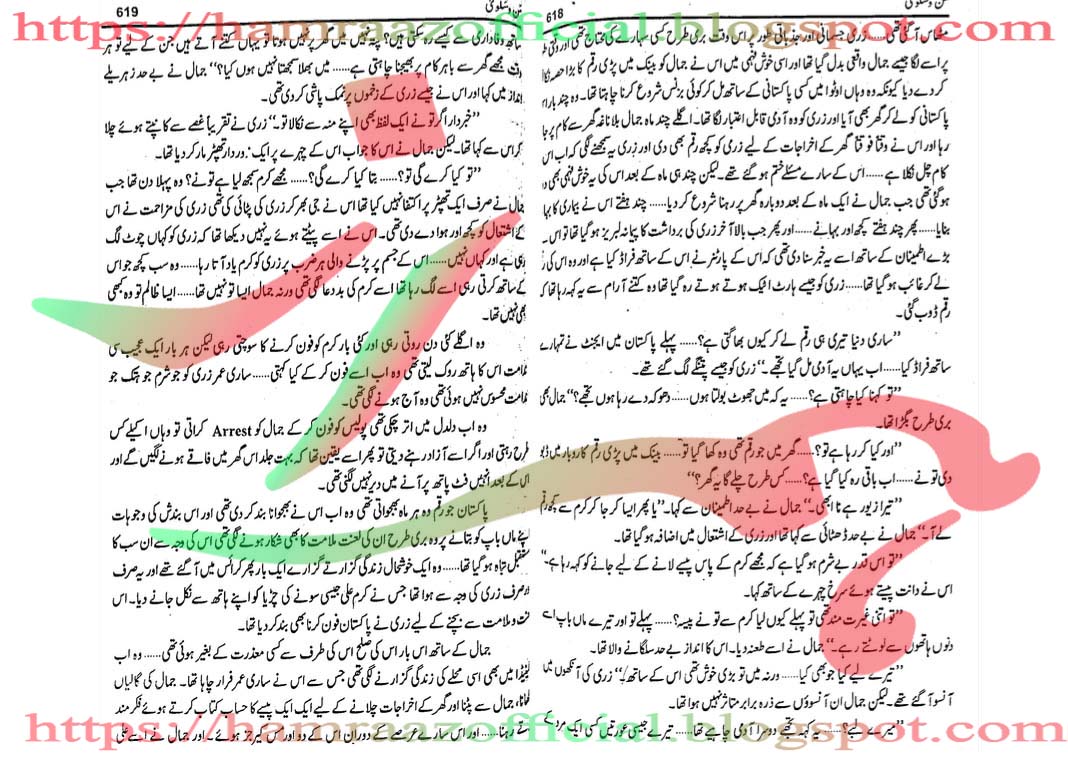 https://hamraazofficial.blogspot.com
618
مٹھاس آ گئی تھی...... زری جسمانی اور جذباتی طور پر اس وقت بری طرح کسی سہارے کی محتاج تھی اور وقتی
پر اسے لگا جیسے جمال واقعی بدل گیا تھا اور اسی خوش فہمی میں اس نے جمال کو بینک میں پڑی رقم کا بڑا حصہ
کر دے دیا کیونکہ وہ وہاں اوٹوا میں کسی پاکستانی کے ساتھ مل کر کوئی بزنس شروع کرنا چاہتا تھا۔ وہ چند بار
پاکستانی کو لے کر گھر بھی آیا اور زری کو وہ آدمی قابل اعتبار لگا تھا۔ اگلے چند ماہ جمال بلا ناغہ گھر سے کام پر جا
رہا اور اس نے وقتاً فوقتاً گھر کے اخراجات کے لیے زری کو کچھ رقم بھی دی اور زری یہ سمجھنے لگی کہ اب اس
کام چل نکلا ہے...... اس کے سارے مسئلے ختم ہو گئے تھے۔ لیکن چند ہی ماہ کے بعد اس کی یہ خوش فہمی بھی
ہو گئی تھی جب جمال نے ایک ماہ کے بعد دوبارہ گھر پر رہنا شروع کر دیا...... چند ہفتے اس نے بیماری کا بہا
بنایا...... پھر چند ہفتے کچھ اور بہانے...... اور پھر جب بالآخر زری کی برداشت کا پیمانہ لبریز ہو گیا تھا تو اس
بڑے اطمینان کے ساتھ اسے یہ خبر سنا دی تھی کہ اس کے پارٹنر نے اس کے ساتھ فراڈ کیا ہے اور وہ اس کی
لے کر غائب ہو گیا تھا...... زری کو جیسے ہارٹ اٹیک ہوتے ہوتے رہ گیا تھا وہ کتنے آرام سے یہ کہہ رہا تھا کہ
رقم ڈوب گئی۔
”ساری دنیا تیری ہی رقم لے کر کیوں بھاگتی ہے؟...... پہلے پاکستان میں ایجنٹ نے تمہارے
ساتھ فراڈ کیا...... اب یہاں یہ آدمی مل گیا تجھے۔“ زری کو جیسے پتنگے لگ گئے تھے۔
”تو کہنا کیا چاہتی ہے؟...... یہ کہ میں جھوٹ بولتا ہوں...... دھوکہ دے رہا ہوں تجھے؟“ جمال بھی
بری طرح بگڑا تھا۔
”اور کیا کر رہا ہے تو؟...... گھر میں جو رقم تھی وہ کھا گیا تو...... بینک میں پڑی رقم کاروبار میں ڈبو
دی تو نے...... اب باقی رہ کیا گیا ہے؟...... کس طرح چلے گا یہ گھر؟“
”تیرا زیور ہے نا ابھی۔“ جمال نے بے حد اطمینان سے کہا۔ ”یا پھر ایسا کر جا کر کرم سے کچھ رقم
لے آ۔“ جمال نے بے حد ڈھٹائی سے کہا تھا اور زری کے اشتعال میں اضافہ ہو گیا تھا۔
”تو اس قدر بے شرم ہو گیا ہے کہ مجھے کرم کے پاس پیسے لانے کے لیے جانے کو کہہ رہا ہے“
اس نے دانت پیستے ہوئے سرخ چہرے کے ساتھ کہا۔
”تو اتنی غیرت مند تھی تو پہلے کیوں لیا کرم سے تو نے پیسہ؟...... پہلے تو اور تیرے ماں باپ اسے
دونوں ہاتھوں سے لوٹتے رہے۔“ جمال نے اسے طعنہ دیا۔ اس کا انداز بے حد سلگانے والا تھا۔
”تیرے لیے کیا جو بھی کیا...... ورنہ میں تو بڑی خوش تھی اس کے ساتھ۔“ زری کی آنکھوں میں
آنسو آ گئے تھے۔ لیکن جمال ان آنسوؤں سے ذرہ برابر متاثر نہیں ہوا تھا۔
”میرے لیے؟...... یہ کہہ تجھے دوسرا آدمی چاہیے تھا...... تیرے جیسی عورتیں کسی ایک مرد کے
619
ساتھ وفاداری سے کیسے رہ سکتی ہیں؟ پتہ نہیں میں گھر پر نہیں ہوتا تو یہاں کتنے آتے ہیں جن کے لیے تو ہر
وقت مجھے گھر سے باہر کام پر بھیجنا چاہتی ہے...... میں بھلا سمجھتا نہیں ہوں کیا؟“ جمال نے بے حد زہریلے
انداز میں کہا اور اس نے جیسے زری کے زخموں پر نمک پاشی کر دی تھی۔
”خبردار اگر تو نے ایک لفظ بھی اپنے منہ سے نکالا تو۔“ زری نے تقریباً غصے سے کانپتے ہوئے چلا
کر اس سے کہا تھا۔ لیکن جمال نے اس کا جواب اس کے چہرے پر ایک زوردار تھپڑ مار کر دیا تھا۔
”تو کیا کرے گی تو؟...... بتا کیا کرے گی؟...... مجھے کرم سمجھ لیا ہے تو نے؟ وہ پہلا دن تھا جب
جمال نے صرف ایک تھپڑ پر اکتفا نہیں کیا تھا اس نے جی بھر کر زری کی پٹائی کی تھی زری کی مزاحمت نے اس
کے اشتعال کو کچھ اور ہوا دے دی تھی۔ اس نے اسے پیٹتے ہوئے یہ نہیں دیکھا تھا کہ زری کو کہاں چوٹ لگ
رہی ہے اور کہاں نہیں...... اس کے جسم پر پڑنے والی ہر ضرب پر زری کو کرم یاد آتا رہا...... وہ سب کچھ جو اس
کے ساتھ کرتی رہی اسے لگ رہا تھا اسے کرم کی بد دعا لگی تھی ورنہ جمال ایسا تو نہیں تھا...... ایسا ظالم تو وہ کبھی
بھی نہیں تھا۔
وہ اگلے کئی دن روتی رہی اور کئی بار کرم کو فون کرنے کا سوچتی رہی لیکن ہر بار ایک عجیب سی
ندامت اس کا ہاتھ روک لیتی تھی وہ اب اسے فون کر کے کیا کہتی...... ساری عمر زری کو جو شرم جو ہتک جو
ندامت محسوس نہیں ہوئی تھی وہ آج ہونے لگی تھی۔
وہ اب دلدل میں اتر چکی تھی پولیس کو فون کر کے جمال کو Arrest کراتی تو وہاں اکیلے کس
طرح رہتی اور اگر اسے آزاد رہنے دیتی تو پھر اسے یقین تھا کہ بہت جلد اس گھر میں فاقے ہونے لگیں گے اور
اس کے بعد انہیں فٹ پاتھ پر آنے میں دیر نہیں لگنی تھی۔
پاکستان جو رقم وہ ہر ماہ بھجواتی تھی وہ اب اس نے بھجوانا بند کر دی تھی اور اس بندش کی وجوہات
اپنے ماں باپ کو بتانے پر وہ بری طرح ان کی لعنت ملامت کا بھی شکار ہونے لگی تھی اس کی وجہ سے ان سب کا
مستقبل تباہ ہو گیا تھا...... وہ ایک خوشحال زندگی گزارتے گزارتے ایک بار پھر کرائسس میں آ گئے تھے اور یہ صرف
اور صرف زری کی وجہ سے ہوا تھا جس نے کرم علی جیسی سونے کی چڑیا کو اپنے ہاتھ سے نکل جانے دیا۔ اس
لعنت و ملامت سے بچنے کے لیے زری نے پاکستان فون کرنا بھی بند کر دیا تھا۔
جمال کے ساتھ اس بار اس کی صلح اس کی طرف سے کسی معذرت کے بغیر ہوئی تھی...... وہ اب
کینیڈا میں بھی اسی محلے کی زندگی گزارنے لگی تھی جس سے اس نے ساری عمر فرار چاہا تھا۔ جمال کی گالیاں
کھانا، جمال سے پٹنا اور گھر کے اخراجات چلانے کے لیے ایک ایک پیسے کا حساب کتاب کرتے ہوئے فکر مند
رہنا...... اور اس سارے عرصے کے دوران اس کے دو اور مس کیرجز ہوئے۔ اور جمال نے اسے
https://hamraazofficial.blogspot.com